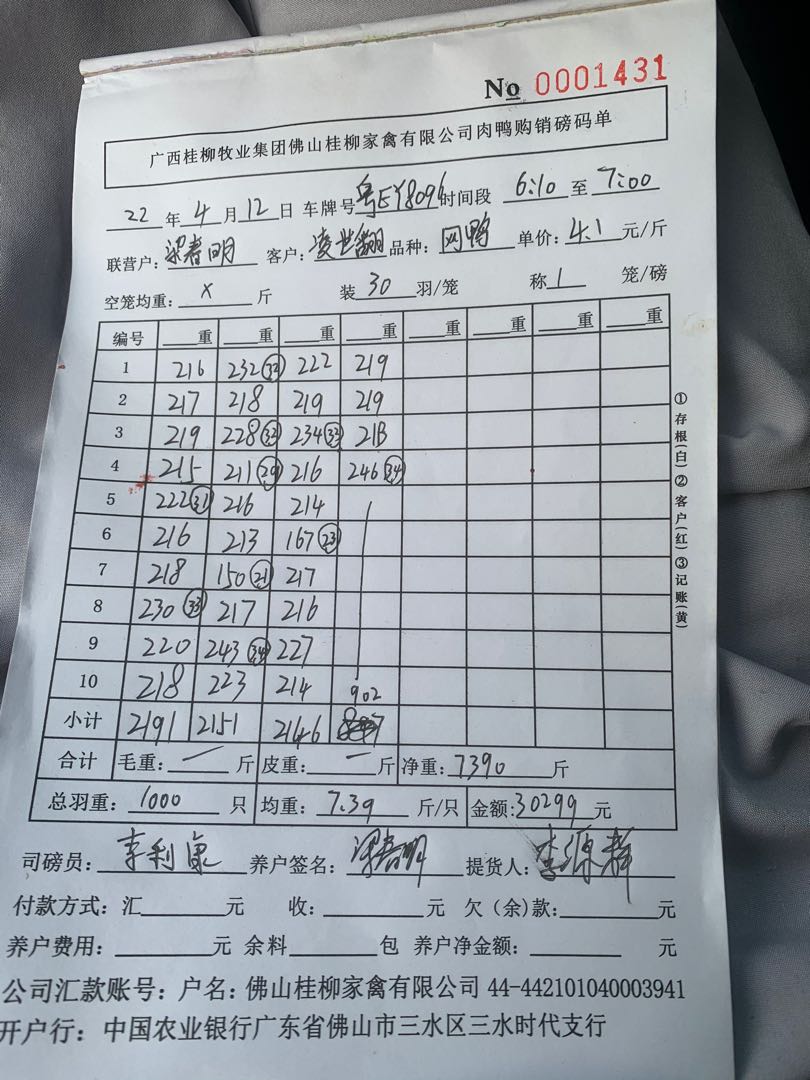 No 0001431
广西桂柳牧业集团佛山桂柳家禽有限公司肉鸭购销磅码单
22 年 4 月 12 日 车牌号 粤EY8096 时间段 6:10 至 7:00
联营户: 梁春明 客户: 凌世翻 品种: 网鸭 单价: 4.1 元/斤
空笼均重: x 斤 装 30 羽/笼 称 1 笼/磅
编号 重 重 重 重 重 重 重 重
1 216 232 32 222 219
2 217 218 219 219
3 219 228 33 234 33 218
4 215 211 29 216 246 34
5 222 31 216 214
6 216 213 167 23
7 218 150 21 217
8 230 33 217 216
9 220 243 34 227
10 218 223 214 902
小计 2191 2151 2146
合计 毛重: 一 斤 皮重: 一 斤 净重: 7390 斤
总羽重: 1000 只 均重: 7.39 斤/只 金额: 30299 元
司磅员: 李利康 养户签名: 梁春明 提货人: 李源静
付款方式: 汇 元 收: 元 欠(余)款: 元
养户费用: 元 余料 包 养户净金额: 元
公司汇款账号: 户名: 佛山桂柳家禽有限公司 44-442101040003941
开户行: 中国农业银行广东省佛山市三水区三水时代支行
①存根(白)②客户(红)③记账(黄)